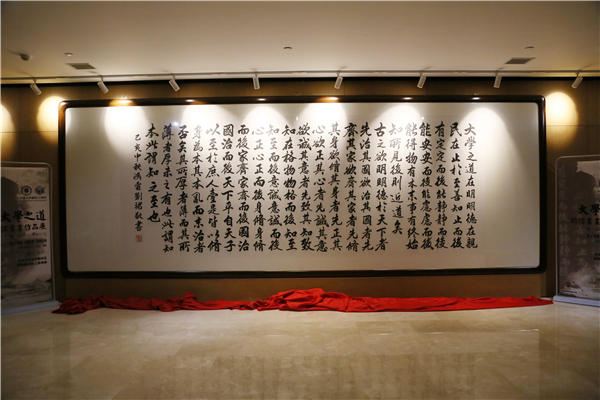 大學之道在明明德在親
民在止於至善知止而後
有定定而後能靜靜而後
能安安而後能慮慮而後
能得物有本末事有終始
知所先後則近道矣
古之欲明明德於天下者
先治其國欲治其國者先
齊其家欲齊其家者先脩
其身欲脩其身者先正其
心欲正其心者先誠其意
欲誠其意者先致其知致
知在格物物格而後知至
知至而後意誠意誠而後
心正心正而後身脩身脩
而後家齊家齊而後國治
國治而後天下平自天子
以至於庶人壹是皆以脩
身為本其本亂而末治者
否矣其所厚者薄而其所
薄者厚未之有也此謂知
本此謂知之至也
己亥中秋 劉 敬書
大學之道
書畫作品展
大學之